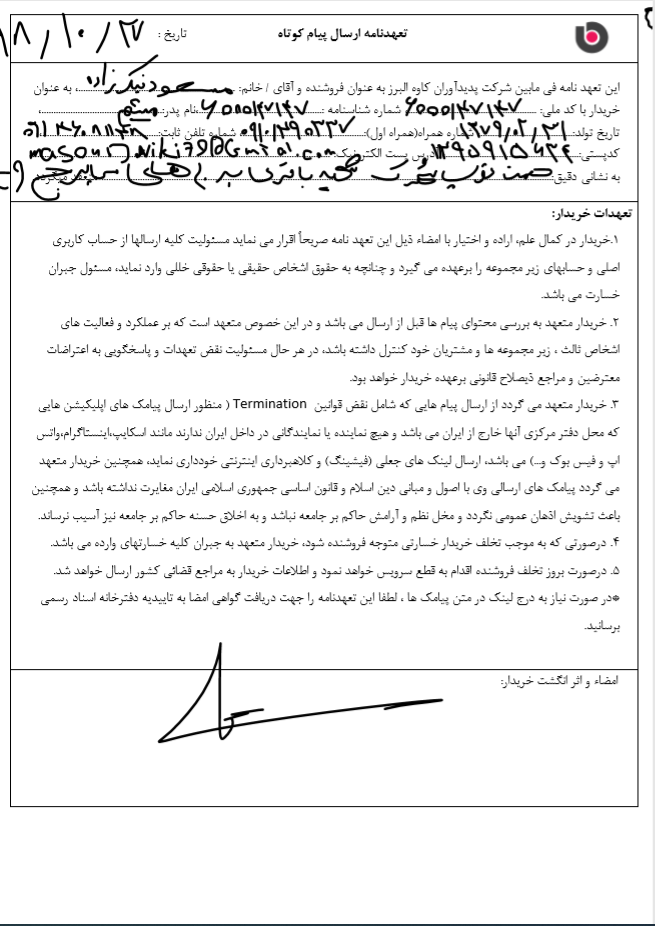 تعهدنامه ارسال پیام کوتاه
تاریخ :
۹۸/۱۰/۲۷
این تعهد نامه فی مابین شرکت پدیدآوران کاوه البرز به عنوان فروشنده و آقای / خانم: مسعود نیک زاده، به عنوان
خریدار با کد ملی: شماره شناسنامه : نام پدر: میثم
تاریخ تولد: ۱۳۷۹/۰۲/۲۱ شماره همراه(همراه اول): شماره تلفن ثابت:
کدپستی: آدرس پست الکترونیک:
به نشانی دقیق:
تعهدات خریدار:
۱.خریدار در کمال علم، اراده و اختیار با امضاء ذیل این تعهد نامه صریحاً اقرار می نماید مسئولیت کلیه ارسالها از حساب کاربری
اصلی و حسابهای زیر مجموعه را برعهده می گیرد و چنانچه به حقوق اشخاص حقیقی یا حقوقی خللی وارد نماید، مسئول جبران
خسارت می باشد.
۲. خریدار متعهد به بررسی محتوای پیام ها قبل از ارسال می باشد و در این خصوص متعهد است که بر عملکرد و فعالیت های
اشخاص ثالث ، زیر مجموعه ها و مشتریان خود کنترل داشته باشد، در هر حال مسئولیت نقض تعهدات و پاسخگویی به اعتراضات
معترضین و مراجع ذیصلاح قانونی برعهده خریدار خواهد بود.
۳. خریدار متعهد می گردد از ارسال پیام هایی که شامل نقض قوانین Termination ( منظور ارسال پیامک های اپلیکیشن هایی
که محل دفتر مرکزی آنها خارج از ایران می باشد و هیچ نماینده یا نمایندگانی در داخل ایران ندارند مانند اسکایپ،اینستاگرام،واتس
اپ و فیس بوک و...) می باشد، ارسال لینک های جعلی (فیشینگ) و کلاهبرداری اینترنتی خودداری نماید، همچنین خریدار متعهد
می گردد پیامک های ارسالی وی با اصول و مبانی دین اسلام و قانون اساسی جمهوری اسلامی ایران مغایرت نداشته باشد و همچنین
باعث تشویش اذهان عمومی نگردد و مخل نظم و آرامش حاکم بر جامعه نباشد و به اخلاق حسنه حاکم بر جامعه نیز آسیب نرساند.
۴. درصورتی که به موجب تخلف خریدار خسارتی متوجه فروشنده شود، خریدار متعهد به جبران کلیه خسارتهای وارده می باشد.
۵. درصورت بروز تخلف فروشنده اقدام به قطع سرویس خواهد نمود و اطلاعات خریدار به مراجع قضائی کشور ارسال خواهد شد.
*در صورت نیاز به درج لینک در متن پیامک ها ، لطفا این تعهدنامه را جهت دریافت گواهی امضا به تاییدیه دفترخانه اسناد رسمی
برسانید.
امضاء و اثر انگشت خریدار: